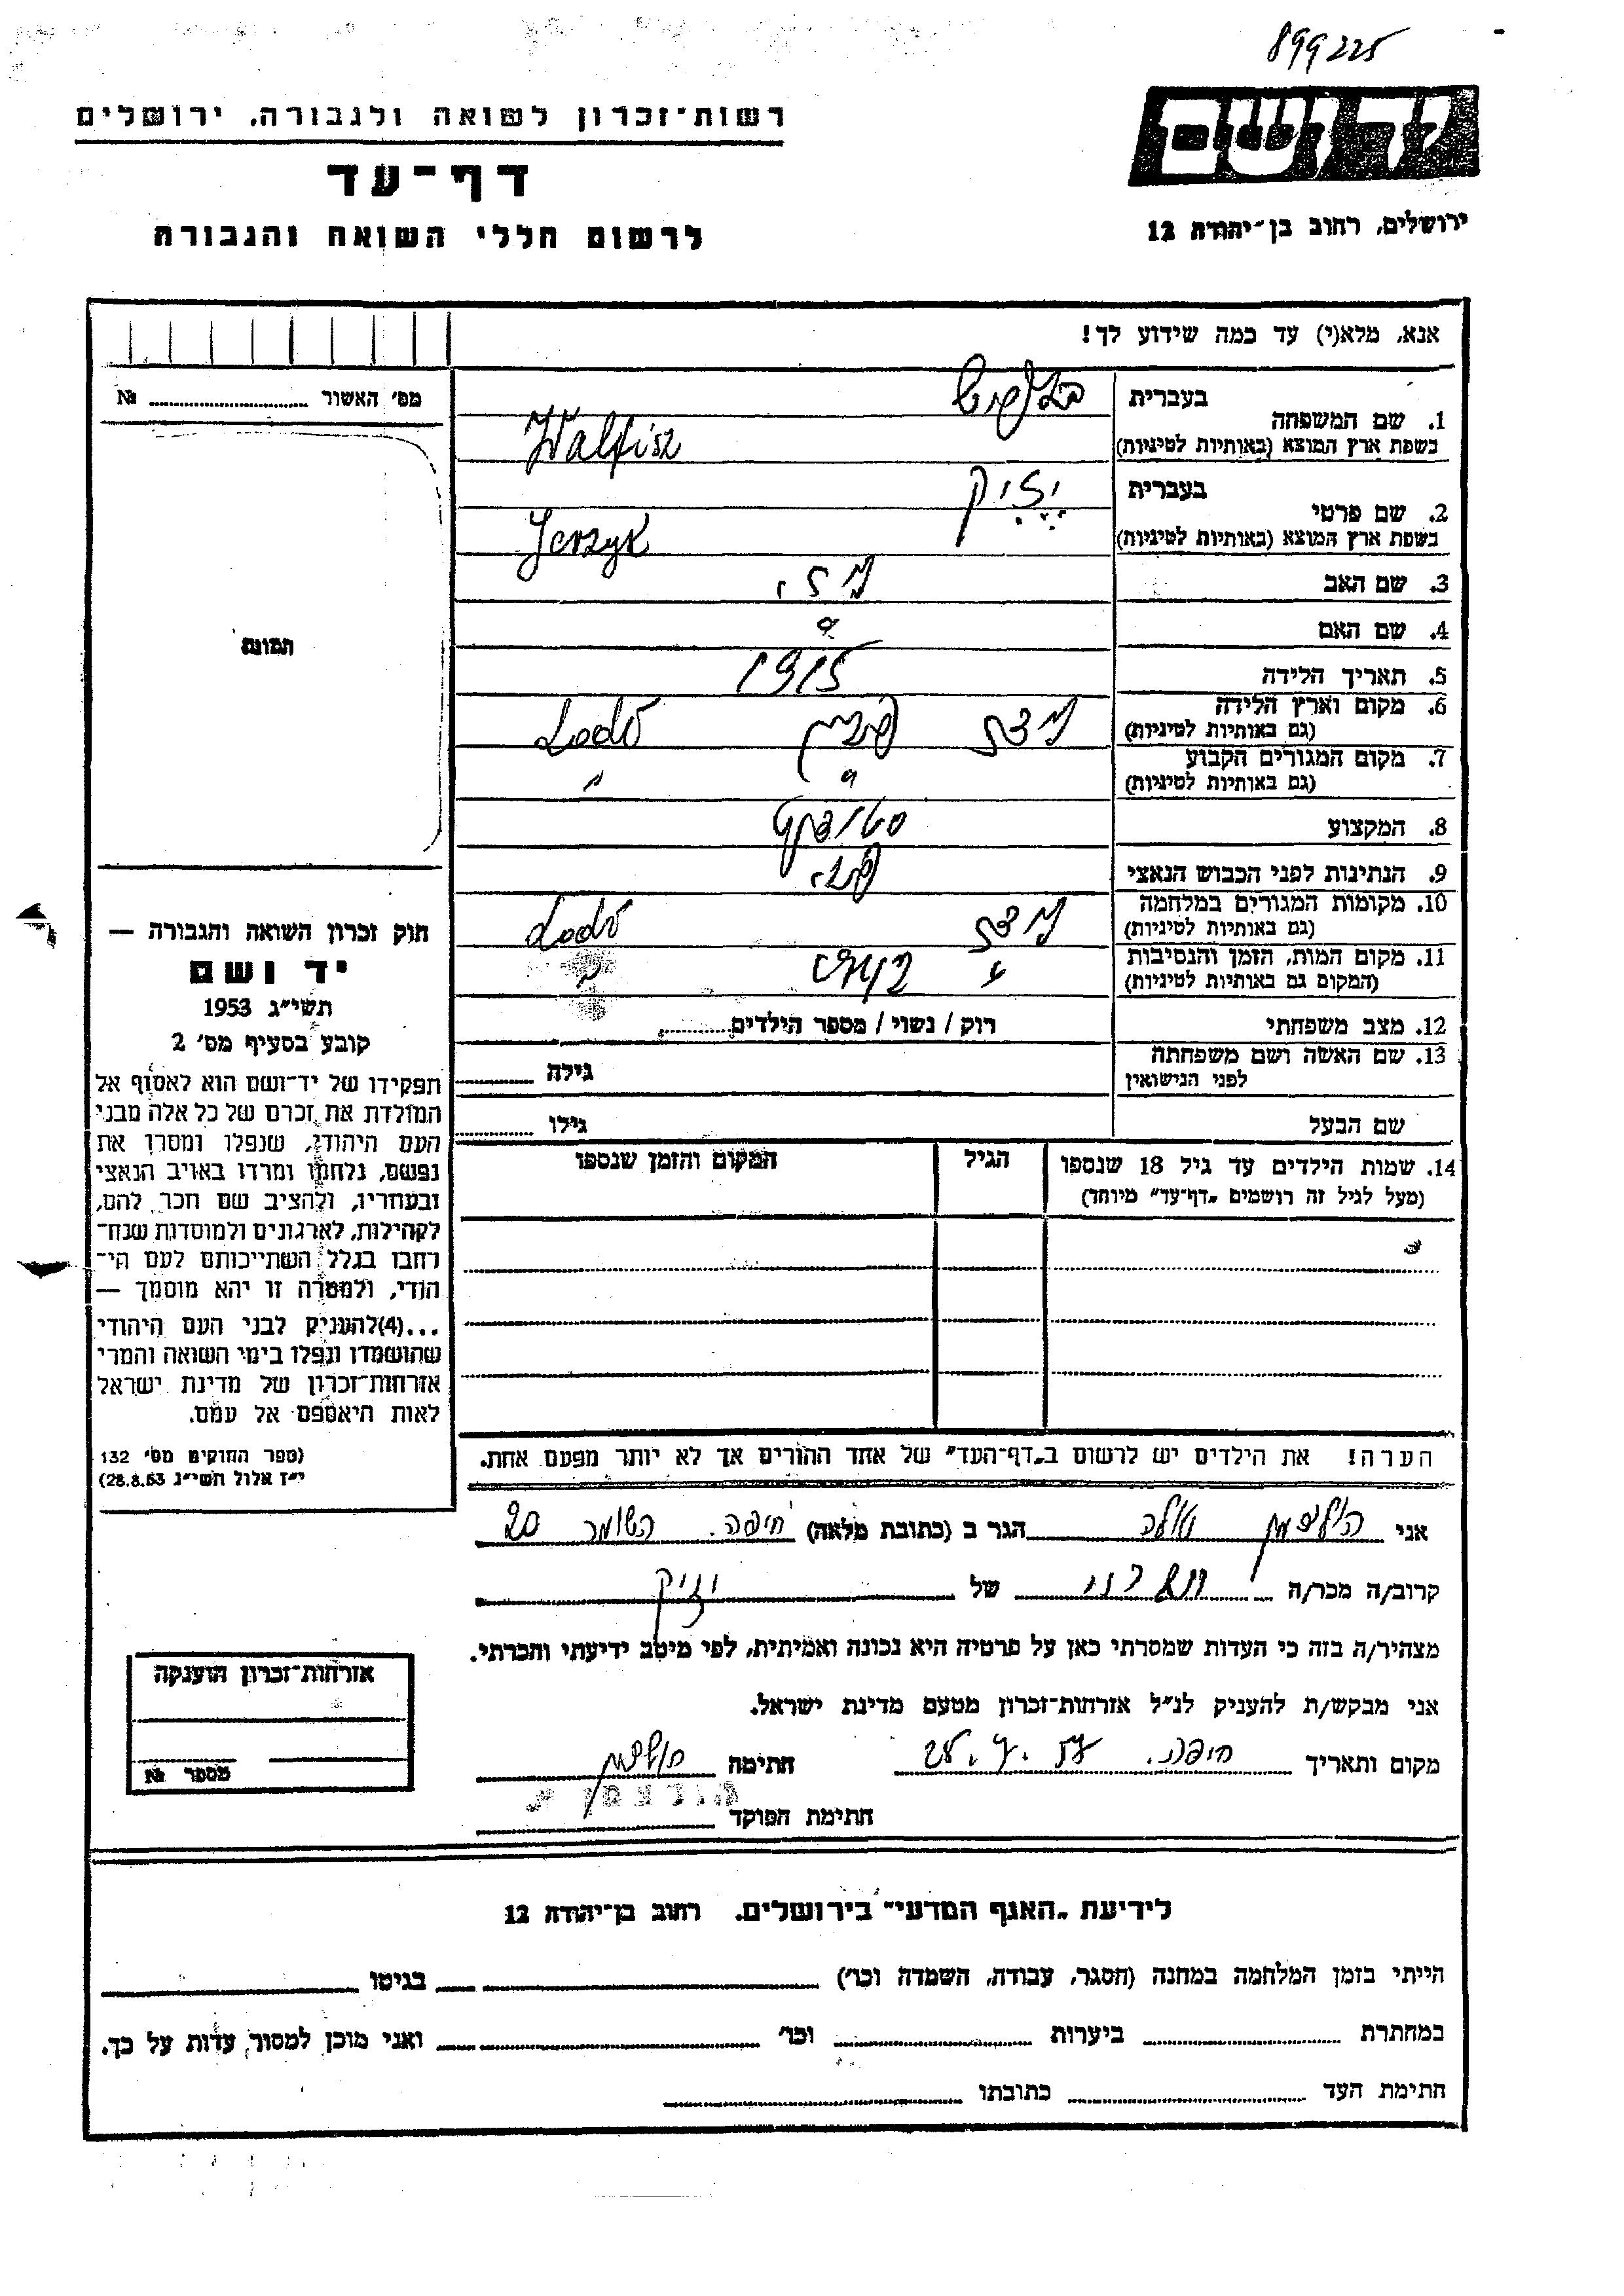 899225
יד ושם
רשות־זכרון לשואה ולגבורה, ירושלים
דף־עד
לרשום חללי השואה והגבורה
ירושלים, רחוב בן־יהודה 12
אנא, מלא(י) עד כמה שידוע לך!
מס׳ האשור № 
תמונה
1. שם המשפחה
בעברית
בשפת ארץ המוצא (באותיות לטיניות)
Walfisz
2. שם פרטי
בעברית
יז׳יק
בשפת ארץ המוצא (באותיות לטיניות)
Jerzyk
3. שם האב
4. שם האם
5. תאריך הלידה 1915
6. מקום וארץ הלידה
(גם באותיות לטיניות)
לודז פולין Lodź
7. מקום המגורים הקבוע
(גם באותיות לטיניות)
" "
8. המקצוע סטודנט
9. הנתינות לפני הכבוש הנאצי פולני
10. מקומות המגורים במלחמה
(גם באותיות לטיניות)
לודז Lodź
11. מקום המות, הזמן והנסיבות
(המקום גם באותיות לטיניות)
" "
12. מצב משפחתי רוק / נשוי / מספר הילדים
13. שם האשה ושם משפחתה
לפני הנישואין גילה
שם הבעל גילו
14. שמות הילדים עד גיל 18 שנספו הגיל המקום והזמן שנספו
(מעל לגיל זה רושמים „דף־עד״ מיוחד)
הערה! את הילדים יש לרשום ב„דף־העד״ של אחד ההורים אך לא יותר מפעם אחת.
חוק זכרון השואה והגבורה —
יד ושם
תשי״ג 1953
קובע בסעיף מס׳ 2
תפקידו של יד־ושם הוא לאסוף אל
המולדת את זכרם של כל אלה מבני
העם היהודי, שנפלו ומסרו את
נפשם, נלחמו ומרדו באויב הנאצי
ובעוזריו, ולהציב שם וזכר להם,
לקהילות, לארגונים ולמוסדות שנח־
רבו בגלל השתייכותם לעם הי־
הודי, ולמטרה זו יהא מוסמך —
...(4)להעניק לבני העם היהודי
שהושמדו ונפלו בימי השואה והמרי
אזרחות־זכרון של מדינת ישראל
לאות היאספם אל עמם.
(ספר החוקים מס׳ 132
י״ז אלול תשי״ג 28.8.53)
אני הולצמן הגר ב (כתובת מלאה) חיפה. השומר 20
קרוב/ה מכר/ה של יז׳יק
מצהיר/ה בזה כי העדות שמסרתי כאן על פרטיה היא נכונה ואמיתית, לפי מיטב ידיעתי והכרתי.
אני מבקש/ת להעניק לנ״ל אזרחות־זכרון מטעם מדינת ישראל.
מקום ותאריך חיפה. חתימה הולצמן
חתימת הפוקד
אזרחות־זכרון הוענקה
מספר №
לידיעת „האגף המדעי״ בירושלים. רחוב בן־יהודה 12
הייתי בזמן המלחמה במחנה (הסגר, עבודה, השמדה וכו׳) בגיטו
במחתרת ביערות וכו׳ ואני מוכן למסור עדות על כך.
חתימת העד כתובתו